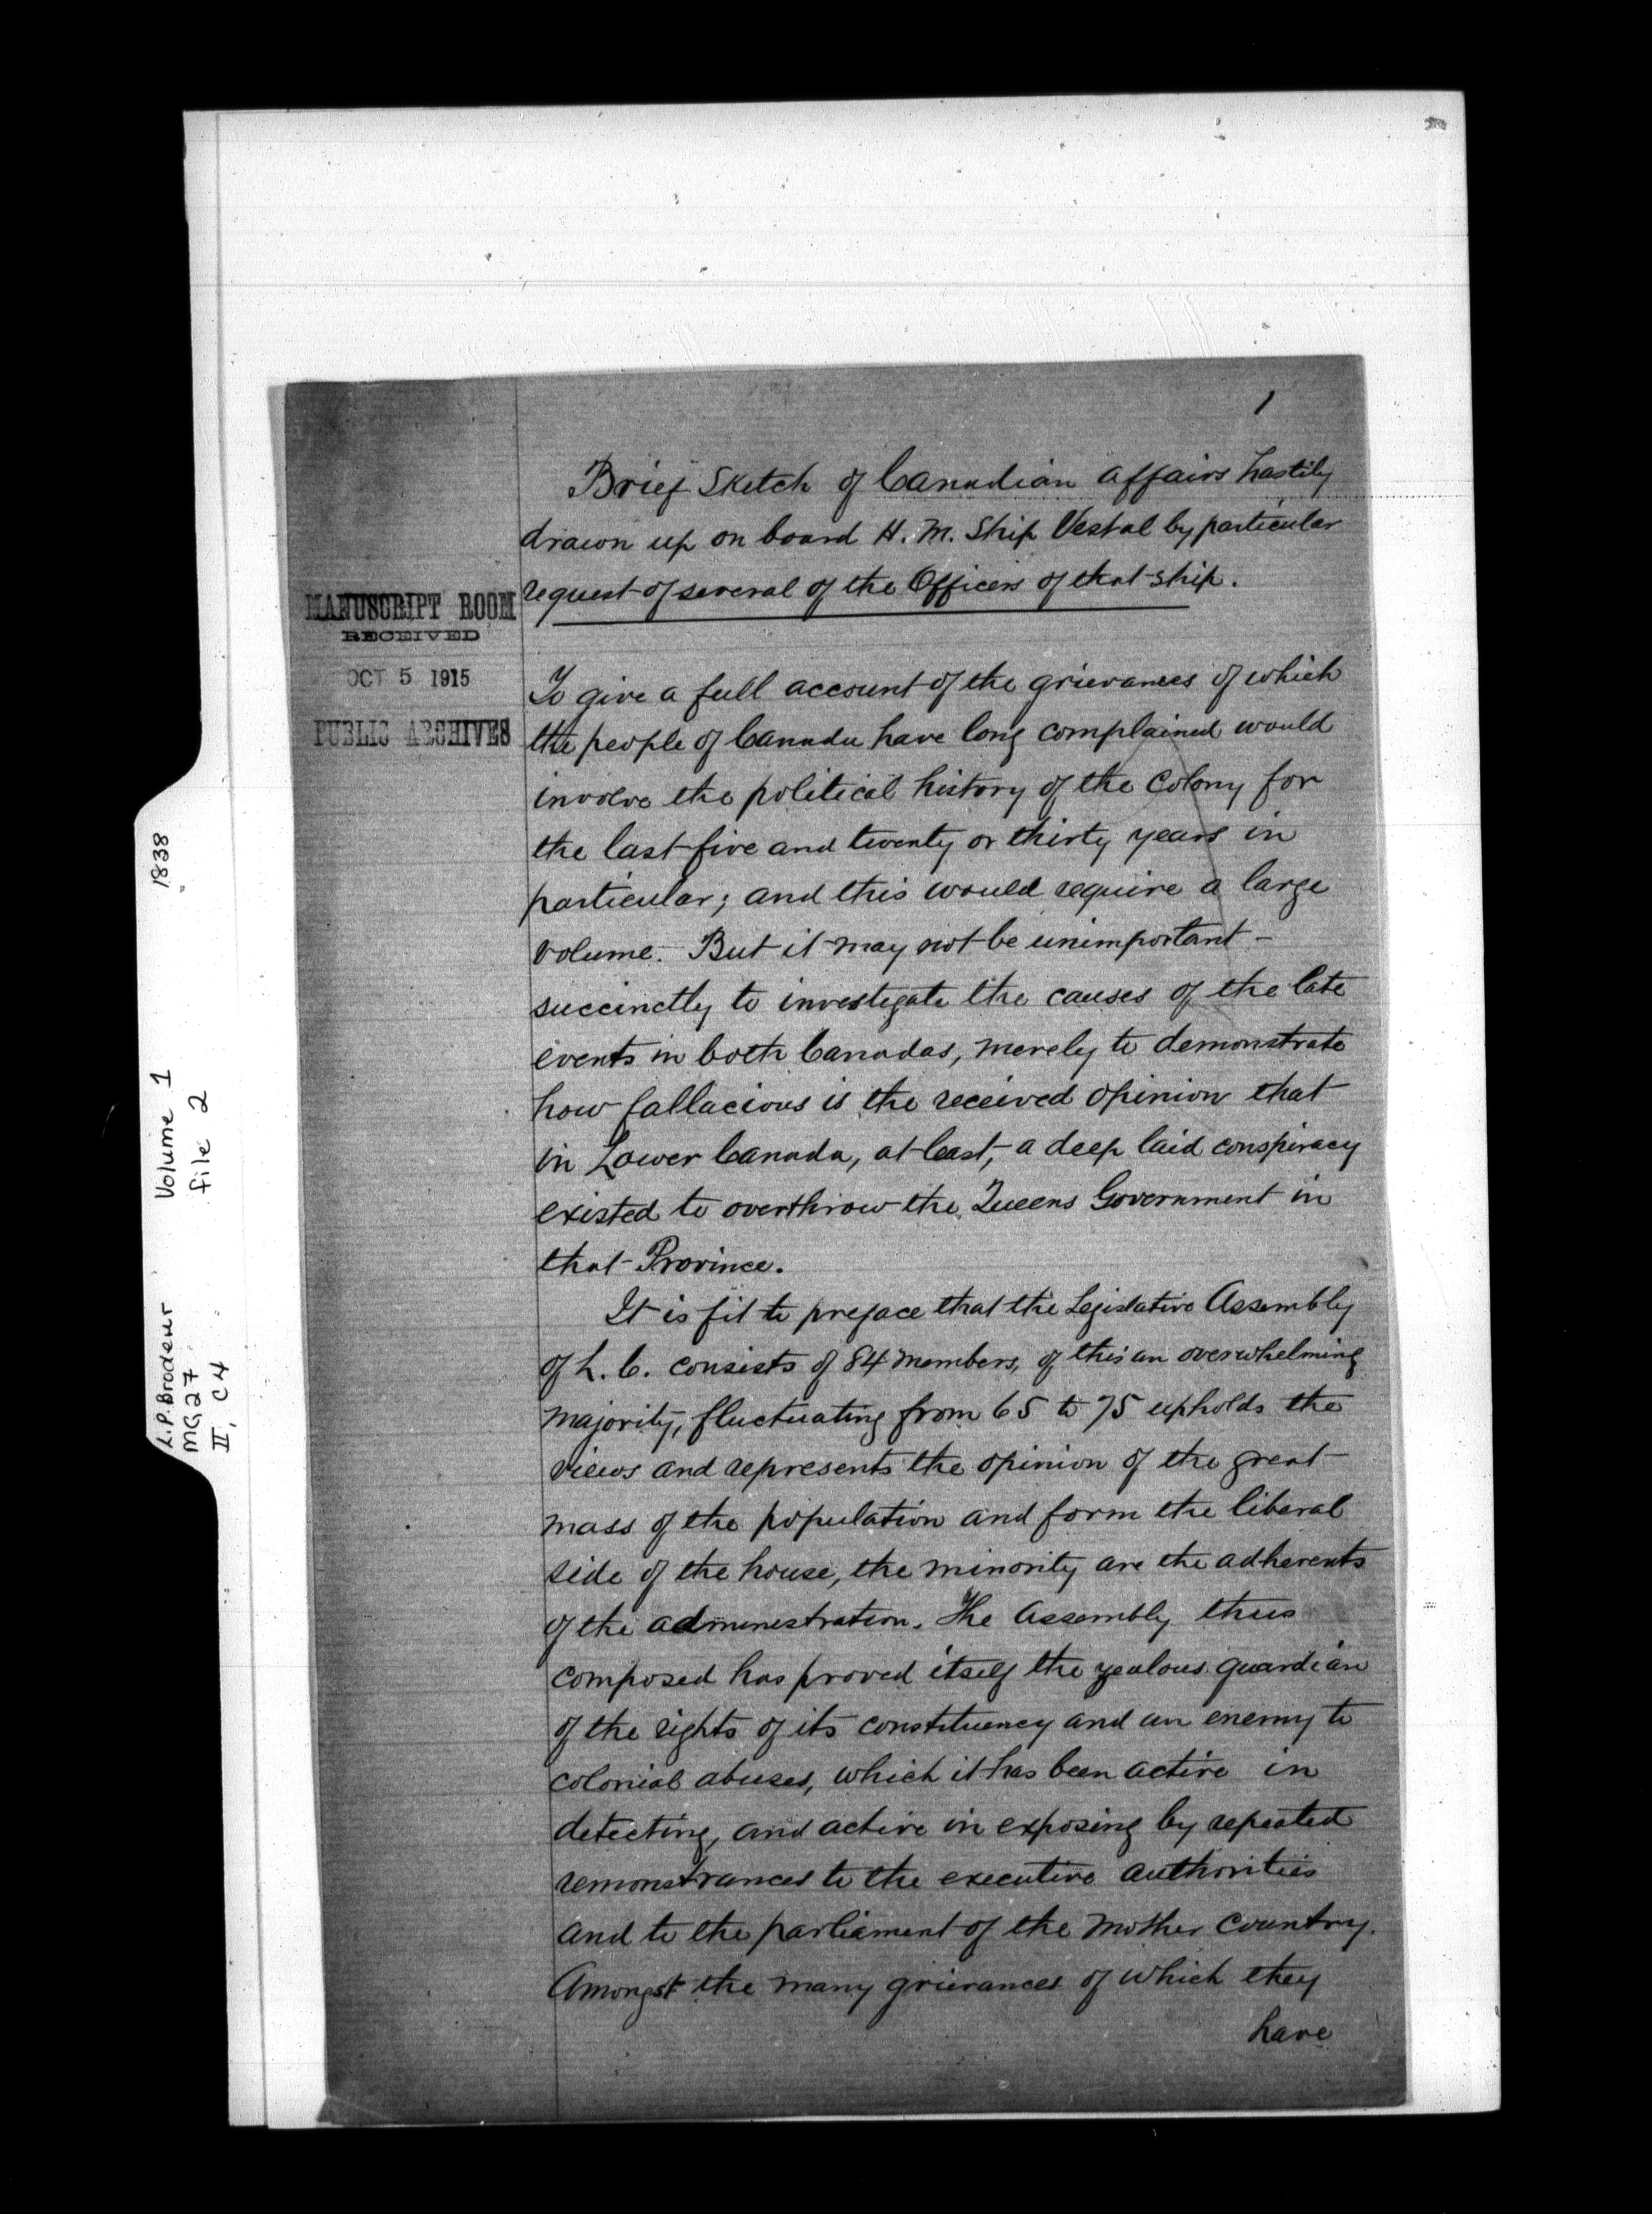 1
Brief Sketch of Canadian affairs hastily
drawn up on board H. M. Ship Vestal by particular
request of several of the Officers of that ship.
MANUSCRIPT ROOM
RECEIVED
OCT 5 1915
PUBLIC ARCHIVES
To give a full account of the grievances of which
the people of Canada have long complained would
involve the political history of the Colony for
the last five and twenty or thirty years in
particular; and this would require a large
volume. But it may not be unimportant -
succinctly to investigate the causes of the late
events in both Canadas, merely to demonstrate
how fallacious is the received opinion that
in Lower Canada, at least, a deep laid conspiracy
existed to overthrow the Queens Government in
that Province.
It is fit to preface that the Legislative Assembly
of L. C. consists of 84 members, of this an overwhelming
majority, fluctuating from 65 to 75 upholds the
views and represents the opinion of the great
mass of the population and form the liberal
side of the house, the minority are the adherents
of the administration. The Assembly thus
composed has proved itself the zealous guardian
of the rights of its constituency and an enemy to
colonial abuses, which it has been active in
detecting, and active in exposing by repeated
remonstrances to the executive authorities
and to the parliament of the Mother Country.
Amongst the many grievances of which they
have
L.P. Brodeur Volume 1 1838
MG27 file 2
II, C4